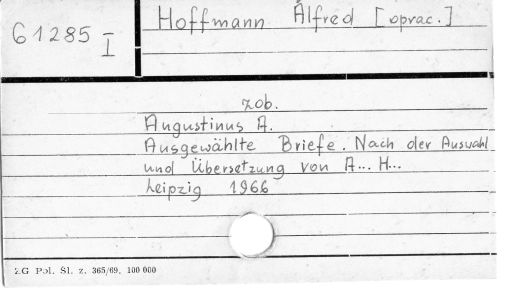 61285 I
Hoffmann Alfred [oprac.]
zob.
Augustinus A.
Ausgewählte Briefe. Nach der Auswahl
und Übersetzung von A... H...
Leipzig 1966
ZG Pol. Śl. z. 365/69, 100 000